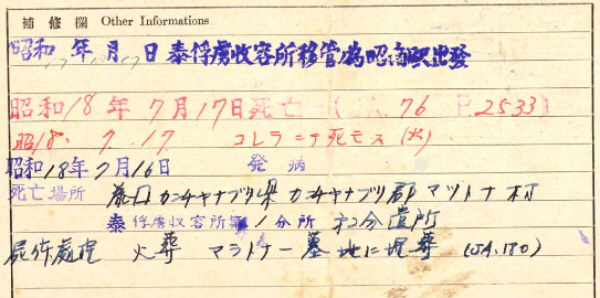 補修欄 Other Informations
昭和17年 月 日 泰俘虜收容所移管ノ為昭南駅出發
昭和18年7月17日死亡 (JA. 76 P.2533)
昭18. 7. 17. コレラニテ死亡ス (火)
昭和18年7月16日 発病
死亡場所 カンチヤナブリ県カンチヤナブリ郡マラトナ村
泰俘虜收容所第1分所 分遣所
屍体處理 火葬 マラトナー墓地に埋葬 (JA.180)